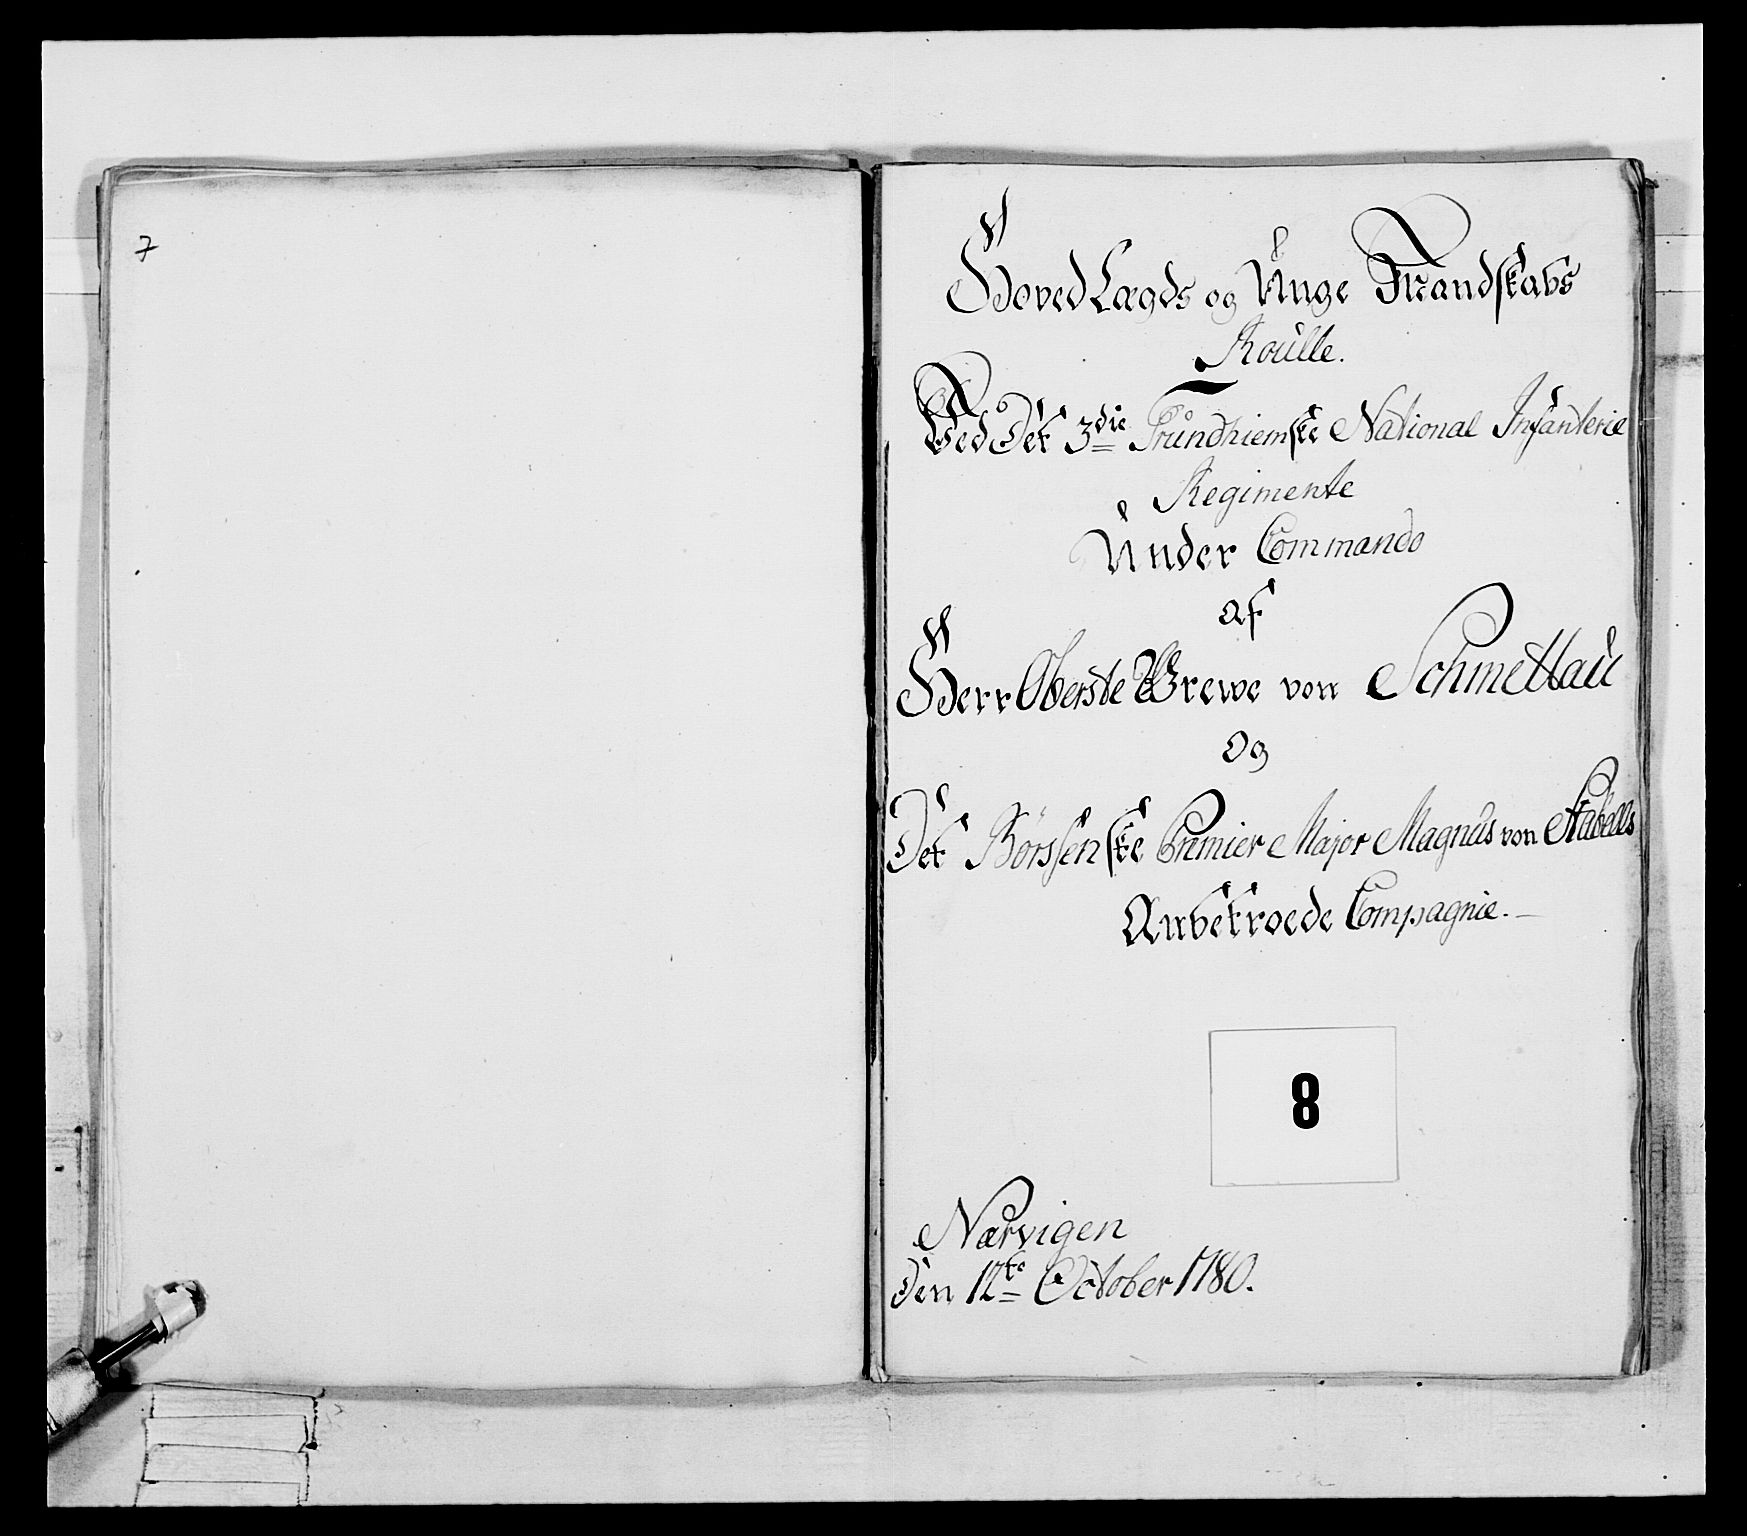 7
Hoved Lægds og Unge Mandskabs
Roulle.
Ved Det 3die Trundhiemske National Infanterie
Regimente
Under Commando
af
Herr Oberste Grewe von Schmettau
Og
Det Börssenske Premier Major Magnus von Stabells
Anbetroede Compagnie.
8
Nærvigen
Den 12te October 1780.